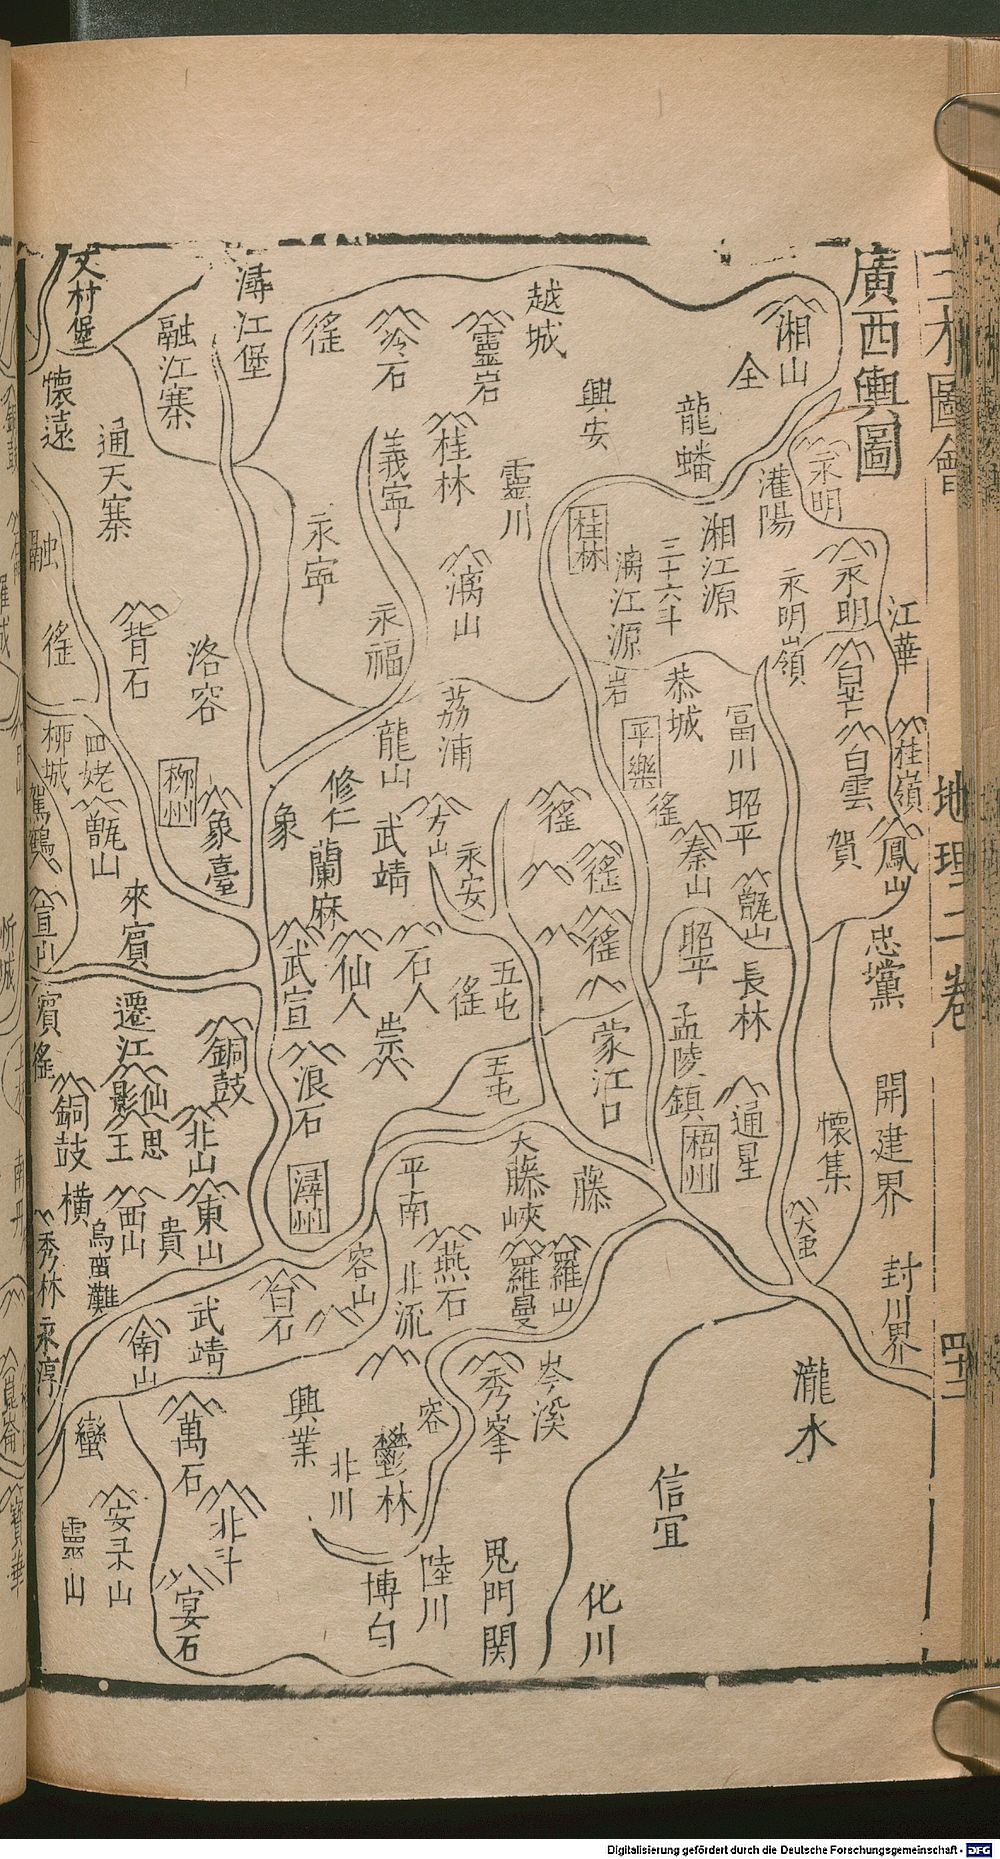 廣西輿圖
湘山
全
越城
靈岩
泠石
猺
潯江堡
融江寨
懷遠
通天寨
興安
龍蟠
灌陽
永明
桂林
義寧
靈川
桂林
湘江源
三十六斗
漓江源
岩
永明
永明嶺
江華
融
猺
背石
洛容
永寧
永福
漓山
荔浦
龍山
恭城
富川
平樂
白芒
白雲
桂嶺
鳳山
賀
柳城
四姥
甑山
柳州
象臺
象
修仁
蘭麻
武靖
方山
永安
猺
猺
猺
猺
秦山
昭平
甑山
昭平
長林
忠黨
宜山
來賓
武宣
仙人
石人
猺
五屯
賓
猺
遷江
銅鼓
浪石
五屯
蒙江口
孟陵鎮
通星
懷集
開建界
封川界
銅鼓
仙影
思王
北山
東山
西山
貴
橫
烏蠻灘
潯州
平南
大藤峽
藤
梧州
秀林
永淳
南山
武靖
白石
容山
北流
燕石
羅曼
羅山
瀧水
信宜
化川
岑溪
秀峯
容
鬱林
北川
興業
萬石
北斗
蠻
靈山
宴石
博白
陸川
鬼門関
地理二卷
Digitalisierung gefördert durch die Deutsche Forschungsgemeinschaft - DFG